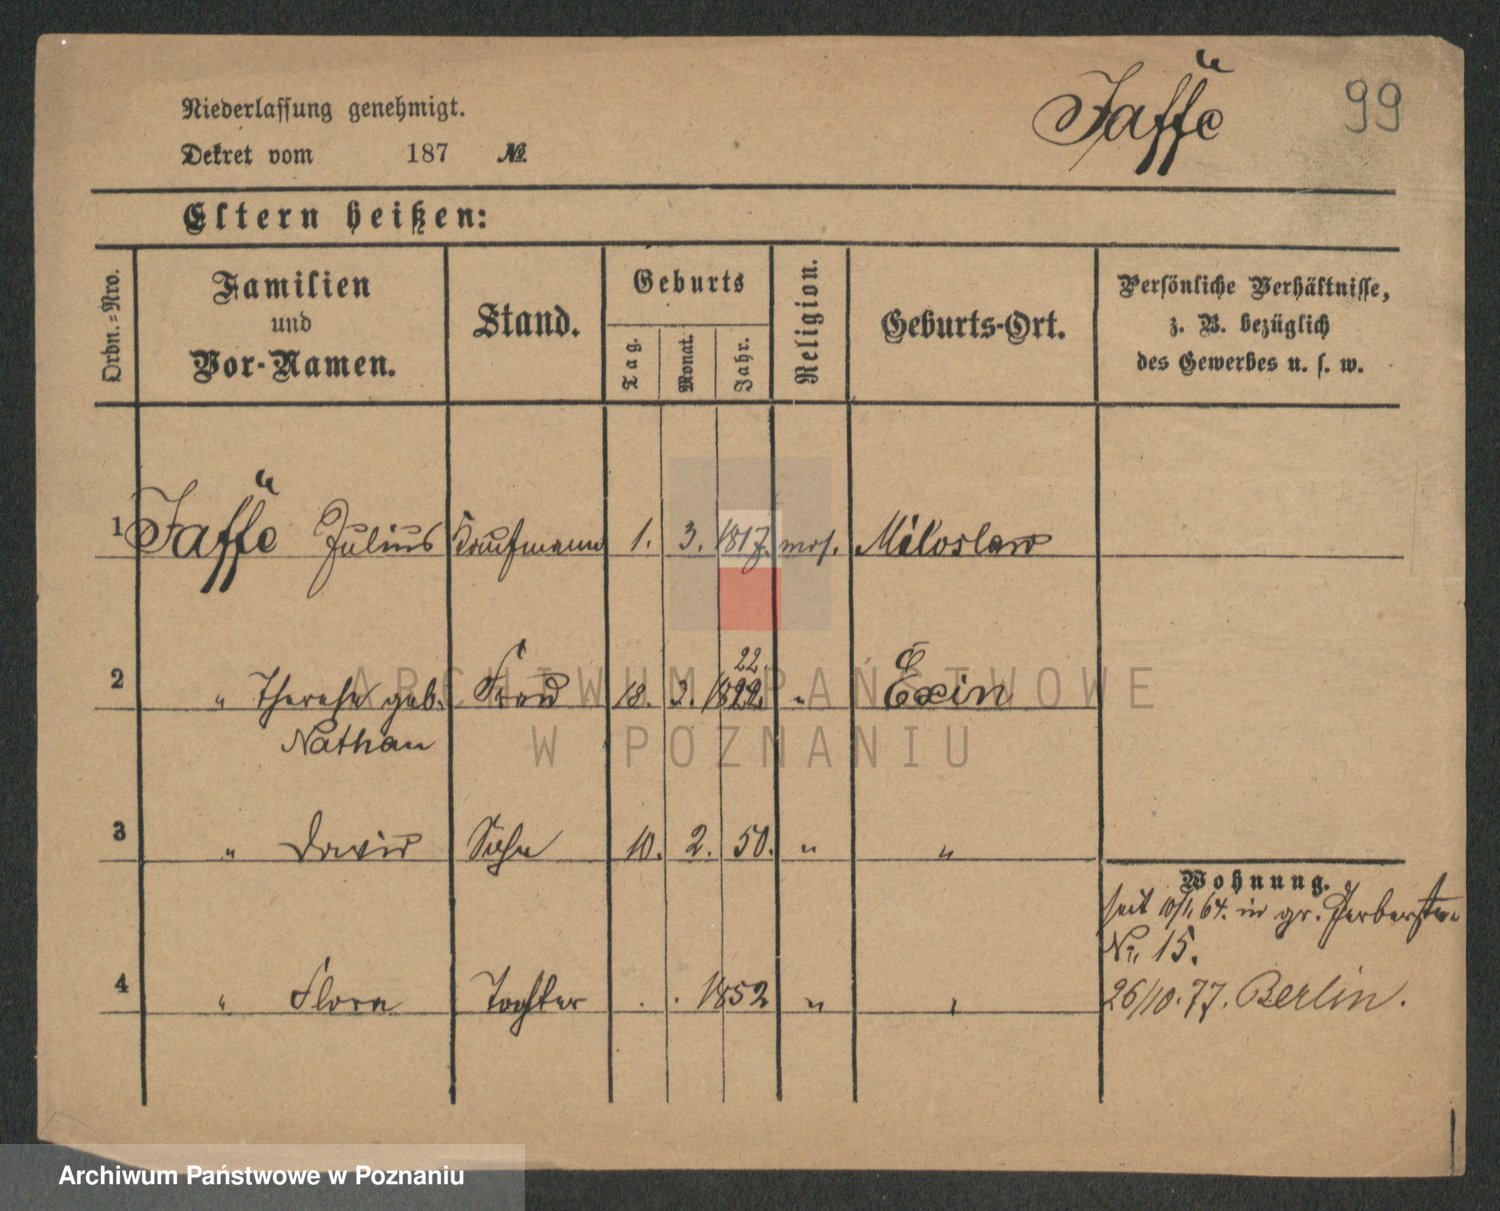 Niederlassung genehmigt.
Dekret vom 187 №
Jaffé
99
Eltern heißen:
Ordn.-Nro.
Familien
und
Vor-Namen.
Stand.
Geburts
Tag.
Monat.
Jahr.
Religion.
Geburts-Ort.
Persönliche Verhältnisse,
z. B. bezüglich
des Gewerbes u. s. w.
1 Jaffé Julius Kaufmann 1. 3. 1817. mos. Miloslaw
22.
2 " Therese geb. Frau 18. 2. 1822. " Exin
Nathan
3 " David Sohn 10. 2. 50. " "
Wohnung.
seit 10/1 64. in gr. Gerberstr.
Nr. 15.
4 " Flora Tochter . . 1852 " "
26/10.77. Berlin.
ARCHIWUM PAŃSTWOWE
W POZNANIU
Archiwum Państwowe w Poznaniu